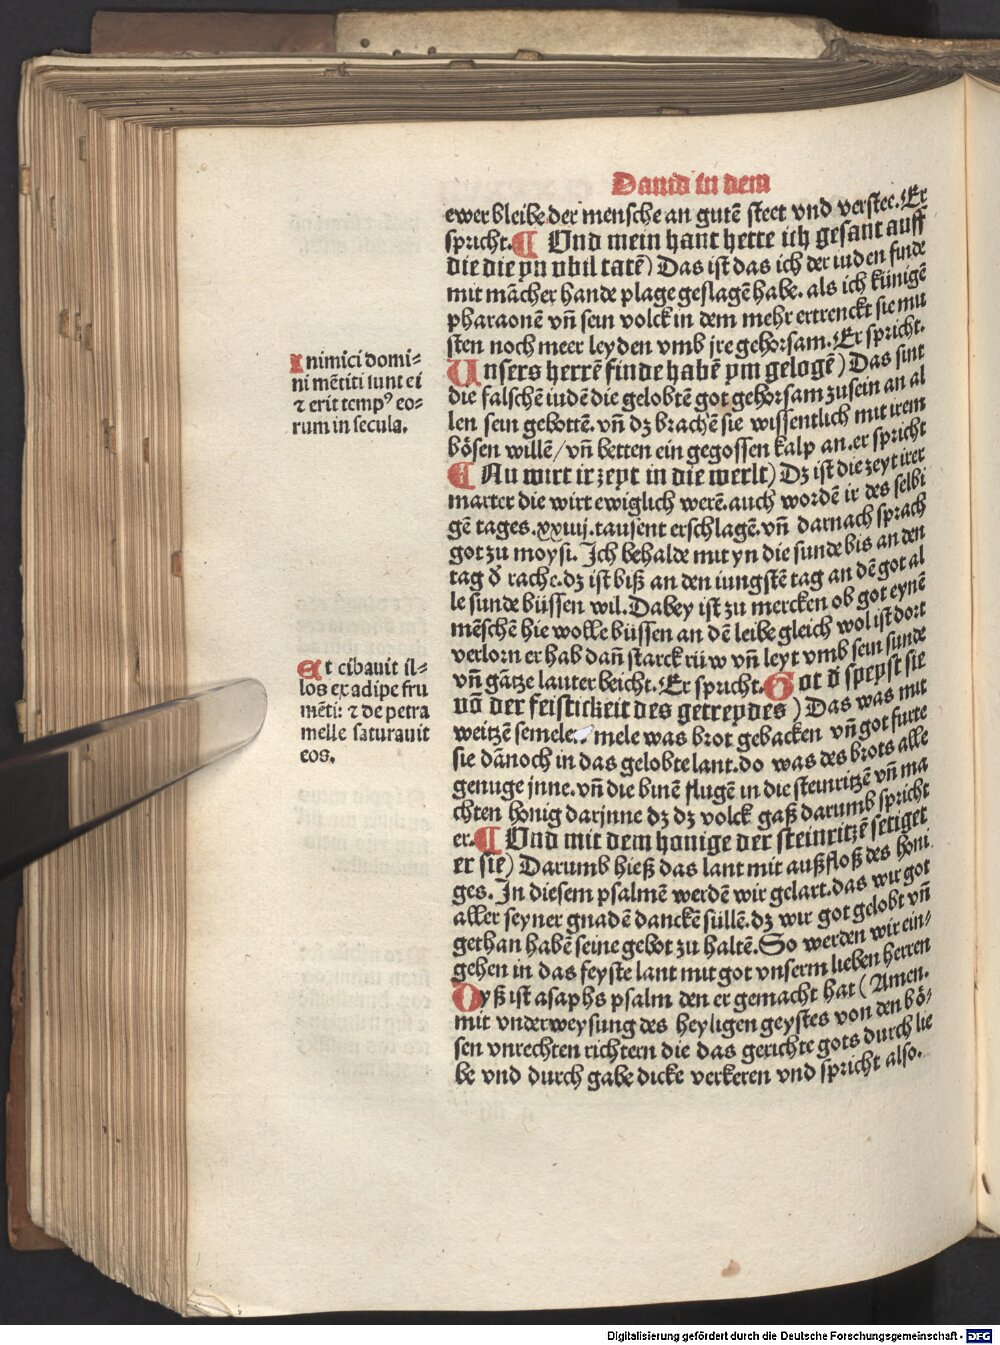 Dauid in dem
ewer bleibe der mensche an gutē steet vnd verstee. Er
spricht. ¶ Und mein hant hette ich gesant auff
die die yn vbil tatē) Das ist das ich der iuden finde
mit mācher hande plage geslagē habe. als ich künigē
pharaonē vn̄ sein volck in dem mehr ertrenckt sie mu
sten noch meer leyden vmb jre gehorsam. Er spricht.
Unsers herrē finde habē ym gelogē) Das sint
die falschē iudē die gelobtē got gehorsam zusein an al
len sein gebottē. vn̄ dz brachē sie wissentlich mit irem
bösen willē / vn̄ betten ein gegossen kalp an. er spricht
¶ Nu wirt ir zeyt in die werlt) Dz ist die zeyt irer
marter die wirt ewiglich werē. auch wordē ir des selbi
gē tages .xxiiij. tausent erschlagē. vn̄ darnach sprach
got zu moysi. Ich behalde mit yn die sunde bis an den
tag d̄ rache. dz ist biß an den iungstē tag an dē got al
le sunde büssen wil. Dabey ist zu mercken ob got eynē
mēschē hie wolle büssen an dē leibe gleich wol ist dort
verlorn er hab dan̄ starck rüw vn̄ leyt vmb sein sunde
vn̄ gātze lauter beicht. Er spricht. Got d̄ speyst sie
vō der feistickeit des getreydes) Das was mit
weitzē semele.. mele was brot gebacken vn̄ got furte
sie dānoch in das gelobte lant. do was des brots alle
genuge jnne. vn̄ die binē flugē in die steinritzē vn̄ ma
chten honig darjnne dz dz volck gaß darumb spricht
er. ¶ Und mit dem honige der steinritzē setiget
er sie) Darumb hieß das lant mit außfloß des honi
ges. In diesem psalmē werdē wir gelart. das wir got
aller seyner gnadē danckē süllē. dz wir got gelobt vn̄
gethan habē seine gebot zu haltē. So werden wir ein-
gehen in das feyste lant mit got vnserm lieben herren
Dyß ist asaphs psalm den er gemacht hat (Amen.
mit vnderweysung des heyligen geystes von den bö-
sen vnrechten richtern die das gerichte gots durch lie
be vnd durch gabe dicke verkeren vnd spricht also.
Inimici domi-
ni mētiti sunt ei
⁊ erit tempꝰ eo-
rum in secula.
Et cibavit il-
los ex adipe fru
mēti: ⁊ de petra
melle saturavit
eos.
Digitalisierung gefördert durch die Deutsche Forschungsgemeinschaft - DFG